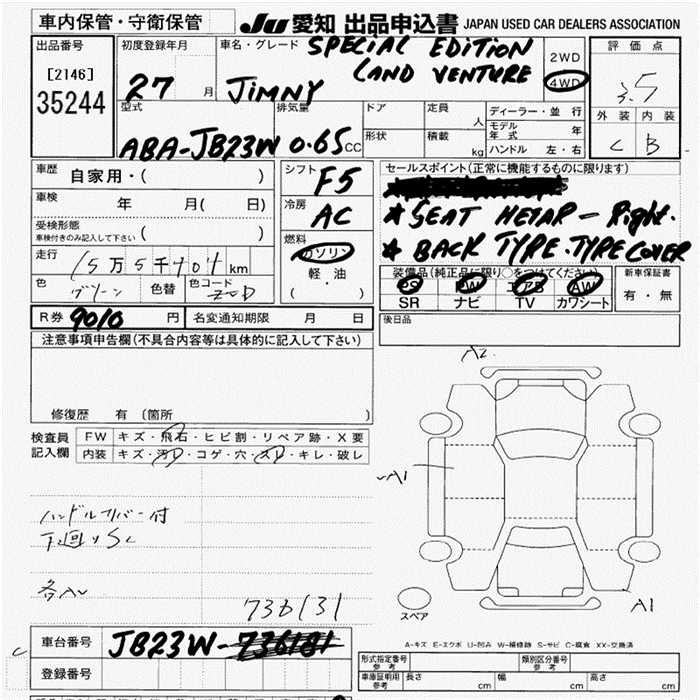 車内保管・守衛保管
Ju 愛知 出品申込書 JAPAN USED CAR DEALERS ASSOCIATION
出品番号
[2146]
35244
初度登録年月
27 月
車名・グレード SPECIAL EDITION
LAND VENTURE
JIMNY
2WD
4WD
評価点
3.5
外装 内装
C B
型式
ABA-JB23W
排気量
0.65CC
ドア
定員
人
形状
積載
kg
ディーラー・並行
モデル年式 年
ハンドル 左・右
車歴 自家用・( )
車検 年 月( 日)
受検形態
車検付きのみ記入して下さい ( )
走行 15万5千707km
色 グリーン 色替 色コード ZCD
シフト F5
冷房 AC
燃料
ガソリン
軽・油
( ・ )
セールスポイント(正常に機能するものに限ります)
★ SEAT HETAR - Right.
★ BACK TYPE.TYPE COVER
装備品(純正品に限り○をつけてください)
PS PW エアB AW
SR ナビ TV カワシート
新車保証書
有・無
R券 9010 円 名変通知期限 月 日
後日品
注意事項申告欄(不具合内容等は具体的に記入して下さい)
修復歴 有 (箇所 )
検査員記入欄
FW キズ・飛石・ヒビ割・リペア跡・X要
内装 キズ・汚れ・コゲ・穴・スレ・キレ・破レ
ハンドルカバー付
下廻りSC
各AU
736131
A2
A1
A1
スペア
A-キズ E-エクボ U-凹み W-補修跡 S-サビ C-腐食 XX-交換済
C
車台番号 JB23W-
登録番号
形式指定番号
参考
類別区分番号
参考
車庫証明用
参考
長さ cm
幅 cm
高さ cm